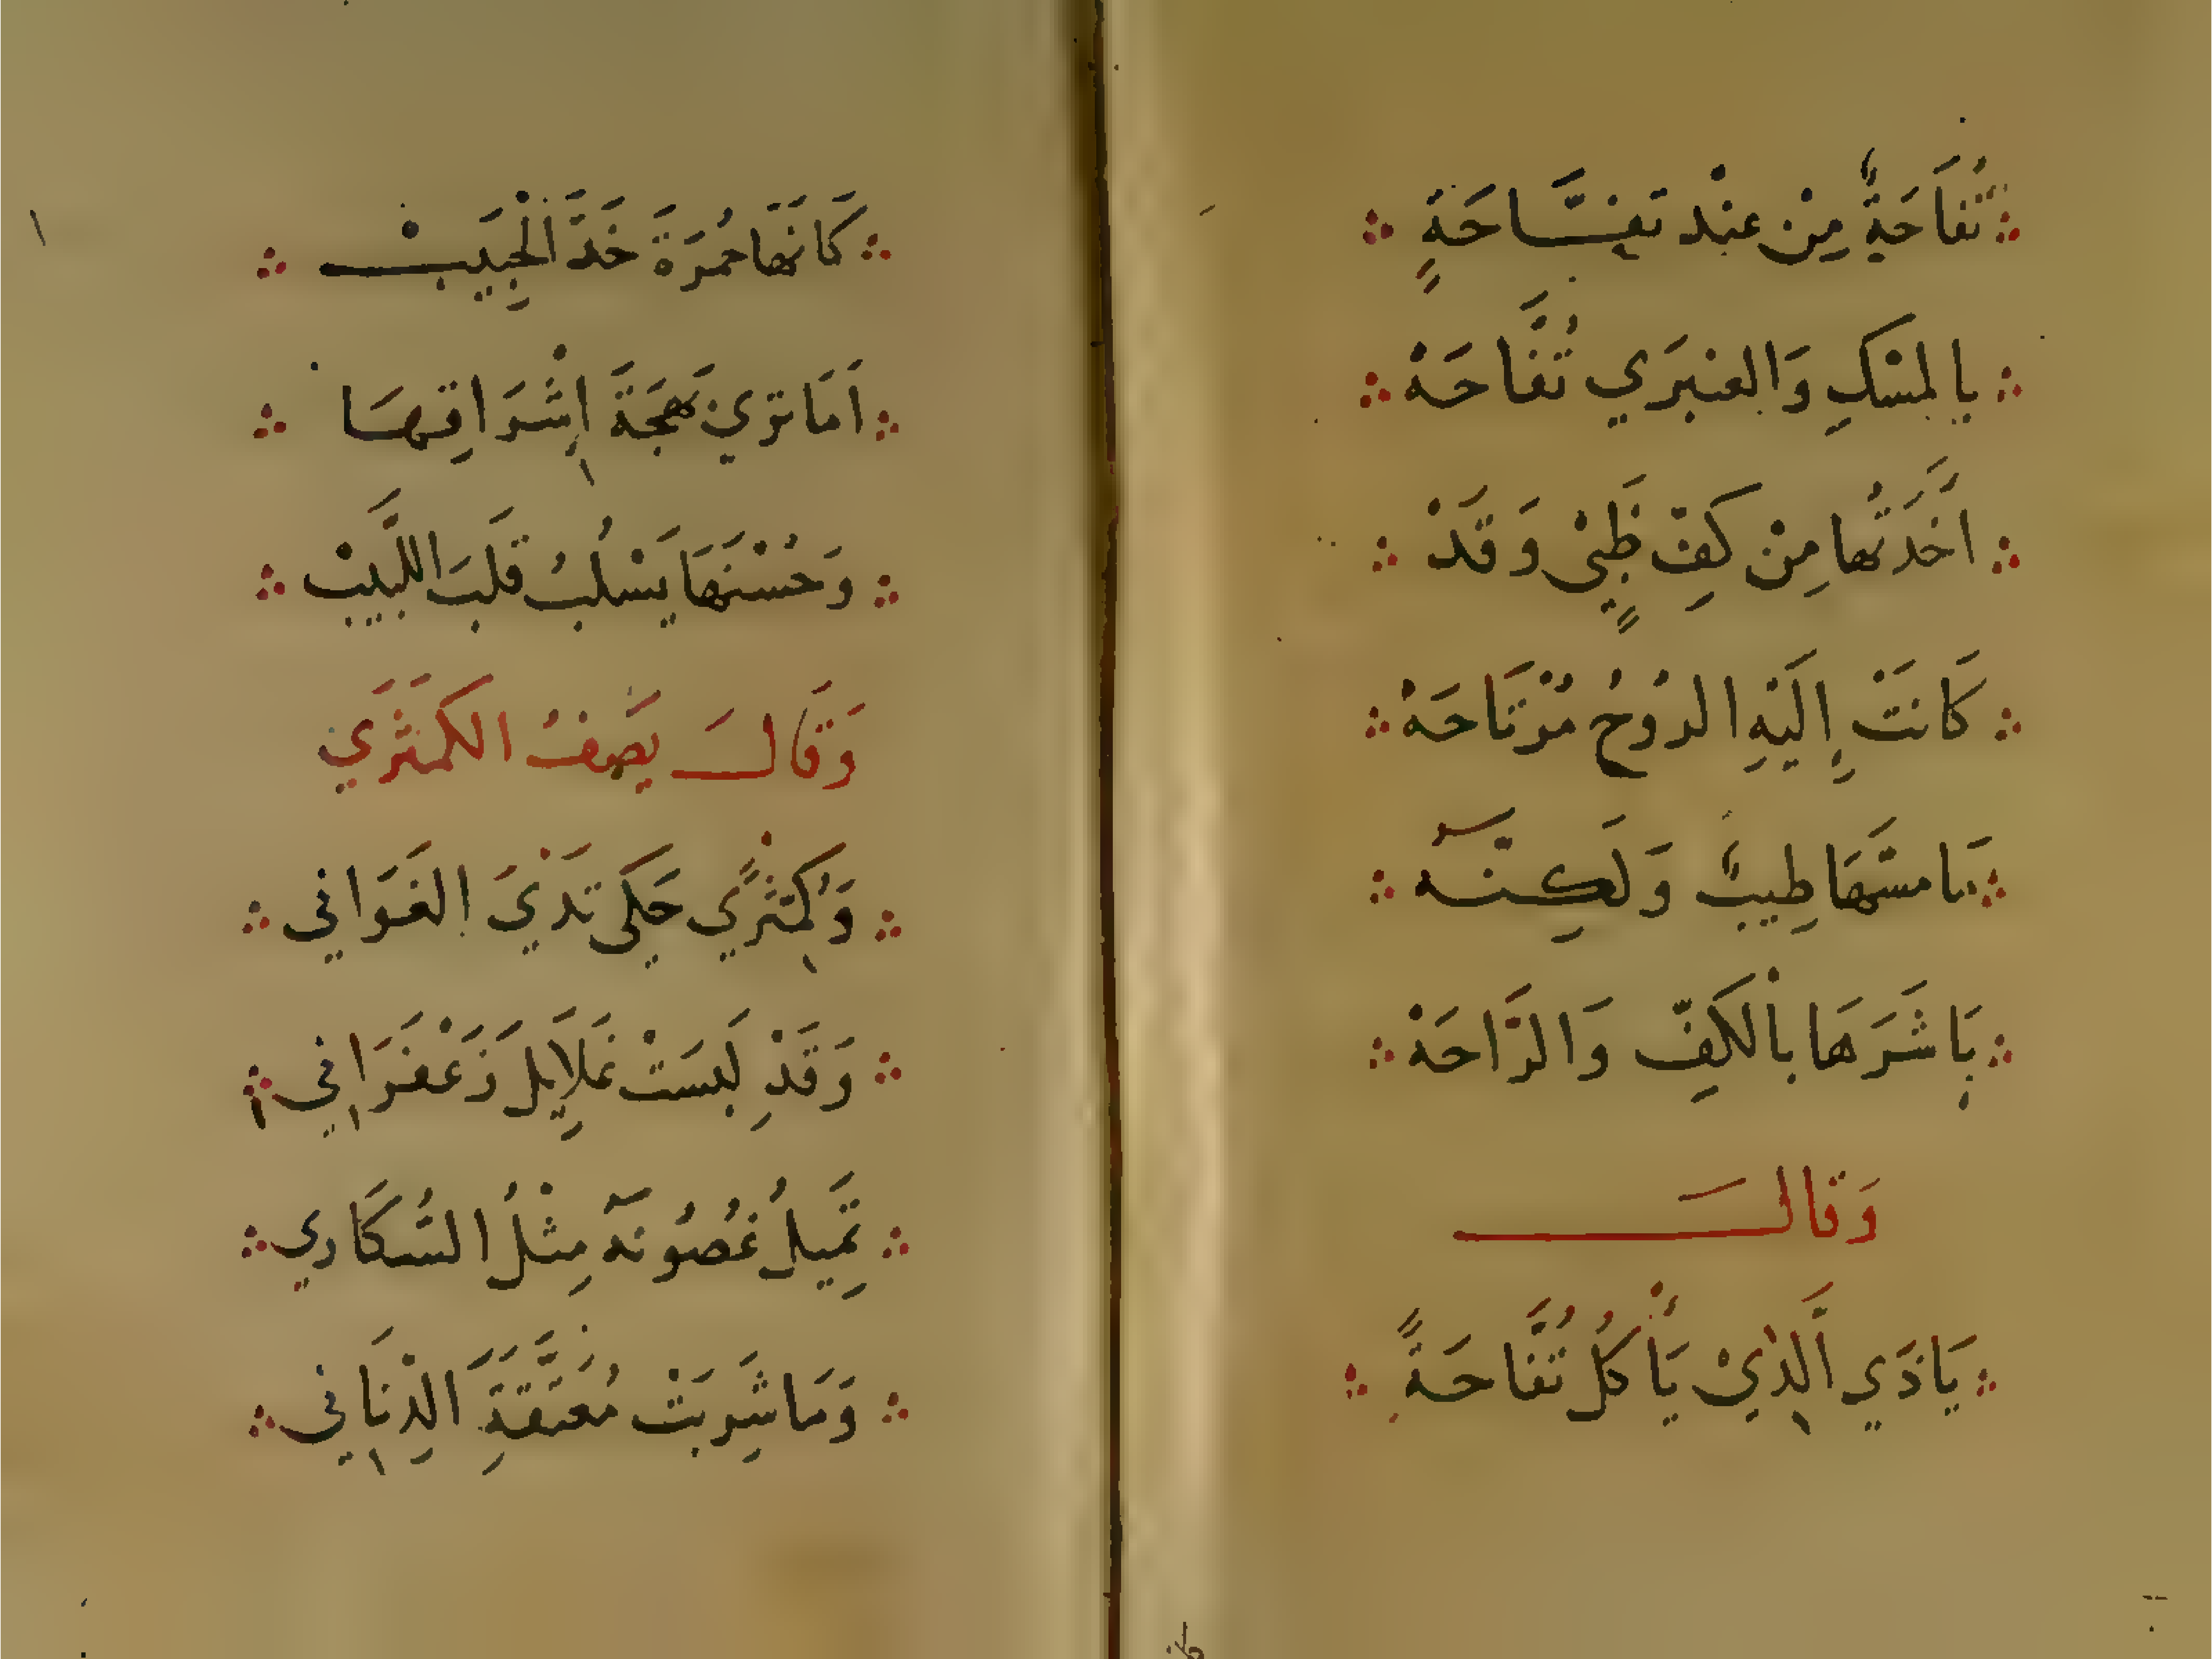 تُفَاحَةٌ مِنْ عِنْد تفسَّاحَةٍ
يا لمسْكِ وَالعنبَرَي تُفَّاحَهْ
اَخَّذَتُها مِنْ كَفِّ ظَبْيٍ وَقَدْ
كَانَتْ اِلَيّهِ الروُحُ مُرْتَاحَهْ
مَا مسَّهَا طِيبٌ وَلَكِنَّهُ
بَاشَرَهَا بالْكَفِّ وَالرَّاحَهْ
وَقالَ
يَا ذَي اَلَّذِيْ يَأْكُل تُفَّاحَةً
كَانهَا حُمرَةَ خَدَّ الْحَبِيَبْ
اَمَا تَرَيَ بَهجَةَ اِشْوَاقِهَا
وَحُسْنَهَا يَسْلُبُ قَلَبَ اللَّبيبْ
وَقَالَ يَصِفُ الكمَثْرَي
وَكُمثْرًي حَكَى ثَدْيَ الغَوَاني
وَقَدْ لَبسَتْ غَلاَيِلَ زَعْفَرَاِني
تَمِيلُ غُصُونهُ مِثْلُ السُّكَارِي
وَمَا شَرِبَتْ مُعَتَّقَةَ الدِنَاِني